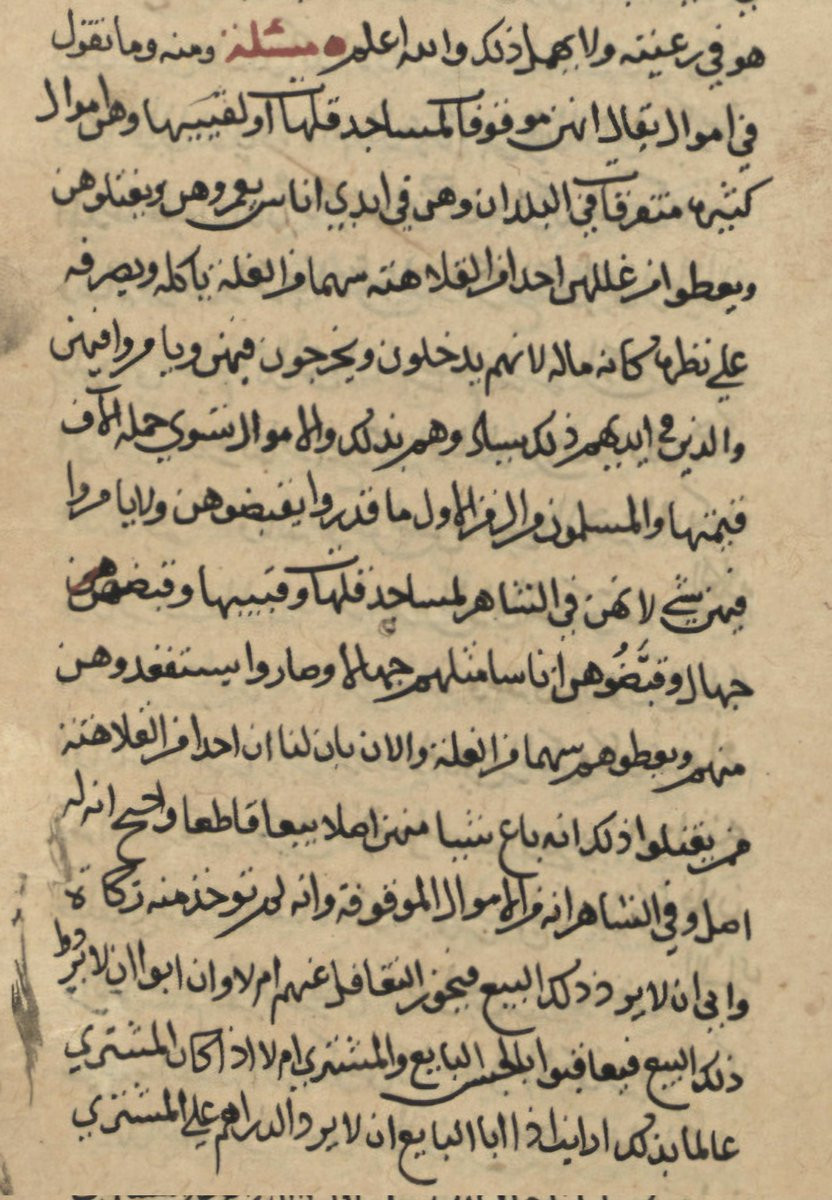 هو في رعيته ولا يهمل ذلك والله اعلم ه مسئلة ومنه وما تقول
في اموال يقال انهن موقوفات لمساجد قلهات او لقيبيها وهي اموال
كثيره متفرقات في البلدان وهن في ايدي اناس يعمروهن ويفتلوهن
ويعطوا من غللهن احدا من الفلاهته سهما من الغلة ياكله ويصرفه
علي نظره كانه ماله لانهم يدخلون ويخرجون فيهن ويامروا فيهن
والذين في ايديهم ذلك بيد وهم بذلك والاموال تسوي جملة الاف
قيمتها والمسلمون من الزمن الاول ما قدروا يقبضوهن ولا يامروا
فيهن بشي لانهن في الشاهر لمساجد قلهات وقبيبها وقبضوهن
جهال وقبَّضُوهن اناسا مثلهم جهالا وصاروا يستفقدوهن
منهم ويعطوهم سهما من الغلة والان بان لنا ان احدا من الفلاهتة
ممن يفتلوا ذلك انه باع شيا منهن اصلا بيعا قاطعا واحتج انه له
اصل وفي الشاهر انه من الاموال الموقوفة وانه لم توخذ منه زكاة
وابي ان لا يرد ذلك البيع فيجوز التغافل عنهم ام لا وان ابوا ان لا يردوا
ذلك البيع فيعاقبوا بالحبس البايع والمشتري ام لا اذا كان المشتري
عالما بذلك ارايت اذا ابا البايع ان لا يرد الدراهم علي المشتري